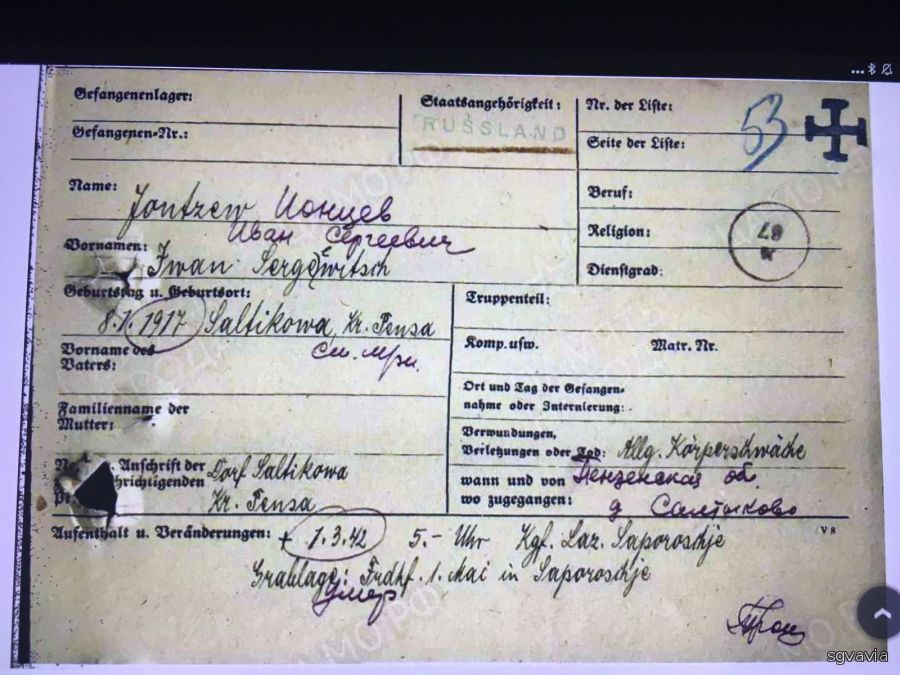 Gefangenenlager:
Gefangenen-Nr.:
Staatsangehörigkeit:
RUSSLAND
Nr. der Liste:
53
Seite der Liste:
Name: Jontzew Ионцев
Иван Сергеевич
Vornamen: Iwan Sergewitsch
Beruf:
Religion:
67
Dienstgrad:
Geburtstag u. Geburtsort:
1917 Saltikowa, Kr. Pensa
Vorname des
Vaters:
см. при.
Familienname der
Mutter:
Anschrift der Dorf Saltikowa
Kr. Pensa
Truppenteil:
Komp. usw. Matr. Nr.
Ort und Tag der Gefangen-
nahme oder Internierung:
Verwundungen,
Verletzungen oder Tod: Allg. Körperschwäche
wann und von Пензенская об.
wo zugegangen: д Салтыково
Aufenthalt u. Veränderungen: + 1.3.42 5.- Uhr Kgf. Laz. Saporoschje
V 8
Grablage: Frdhf. 1. Mai in Saporoschje
Умер
sgvavia